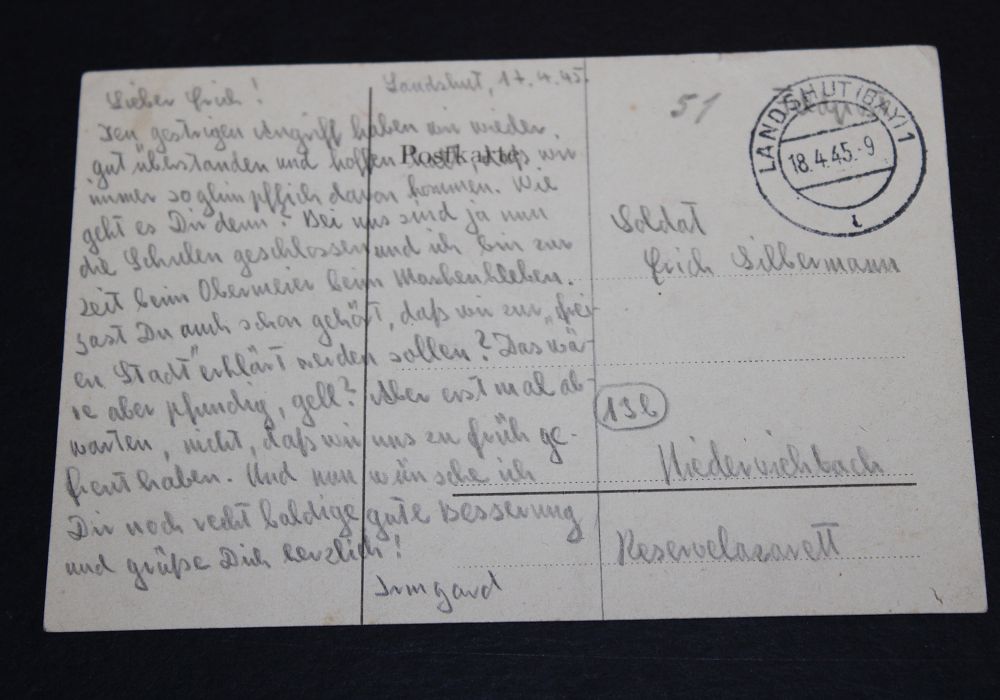 Landshut, 17.4.45.
Lieber Erich!
Den gestrigen Angriff haben wir wieder
gut überstanden und hoffen auch, daß wir
immer so glimpflich davon kommen. Wie
geht es Dir denn? Bei uns sind ja nun
die Schulen geschlossen und ich bin zur
Zeit beim Obermeier beim Markenkleben.
Hast Du auch schon gehört, daß wir zur „frei-
en Stadt" erklärt werden sollen? Das wä-
re aber pfundig, gell? Aber erst mal ab-
warten, nicht, daß wir uns zu früh ge-
freut haben. Und nun wünsche ich
Dir noch recht baldige gute Besserung
und grüße Dich herzlich!
Irmgard
Postkarte
51
LANDSHUT (BAY) 1
18.4.45.-9
i
Soldat
Erich Silbermann
13b
Niederviehbach
Reservelazarett